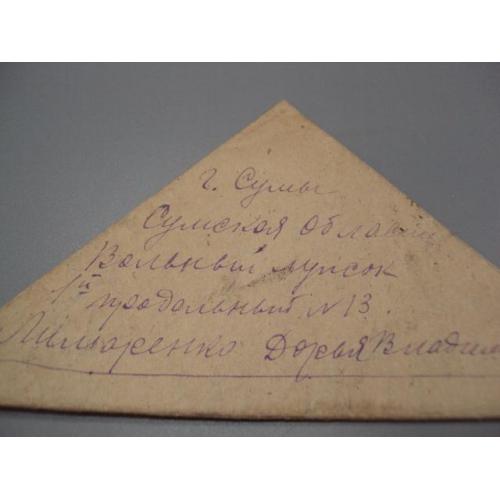 г. Сумы
Сумская Область
Вольный лужок
1й продольный N 13.
Дарья Владим